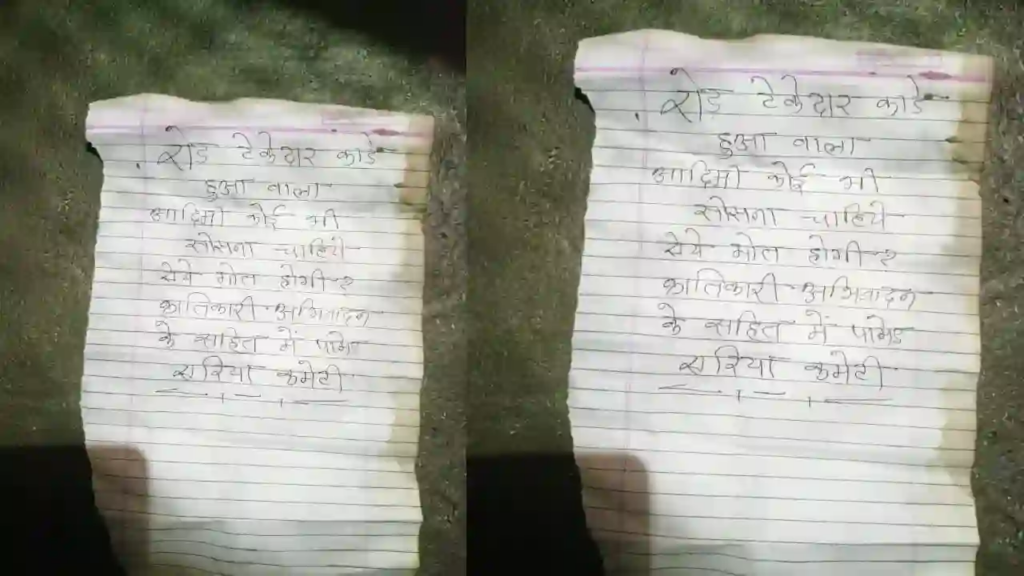 रोड टेकेदार काडे
हुआ वाला
आदिमी कोई भी
सोसना चाहिये
सेये मोत होगी-२
क्रातिकारी अभिवादन
के साहित में पामेड
एरिया कमेटी
रोड टेकेदार काडे
हुआ वाला
आदिमी कोई भी
सोसना चाहिये
सेये मोत होगी-२
क्रातिकारी अभिवादन
के साहित में पामेड
एरिया कमेटी